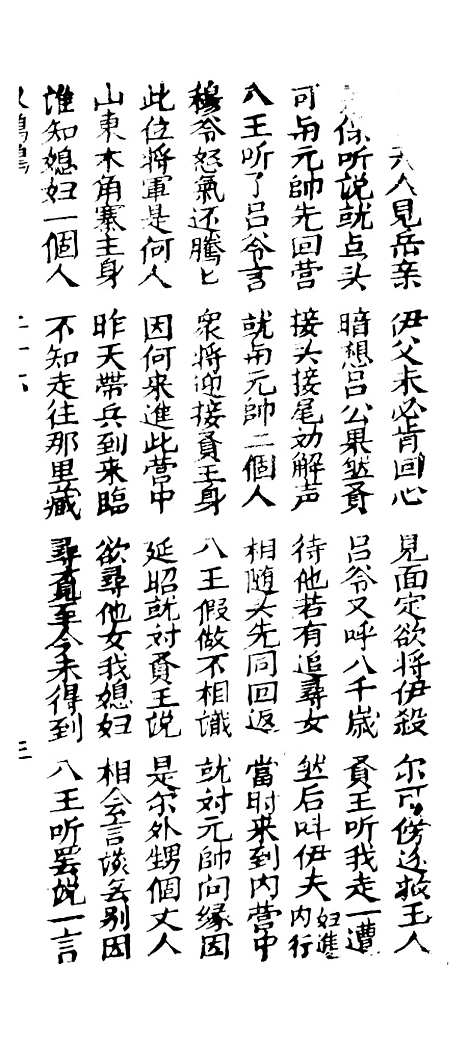 夫人見岳亲 伊父未必肯回心 見面定欲将伊殺 尔可傍 救玉人
保听说就点头 暗想吕公果然賢 吕爷又呼八千歲 賢王听我走一遭
可与元帥先回营 接头接尾劝解声 待他若有追尋女 然后叫伊夫妇進内行
八王听了吕爷言 就与元帥二個人 相随头先同回返 當时来到内营中
穆爷怒氣还騰匕 衆将迎接賢王身 八王假做不相識 就对元帥问缘因
此位将軍是何人 因何来進此营中 延昭就対賢王说 是尔外甥個丈人
山東木角寨主身 昨天帶兵到来臨 欲尋他女我媳妇 相会言谈各别因
誰知媳妇一個人 不知走往那里藏 尋覓至今未得到 八王听罢说一言
三